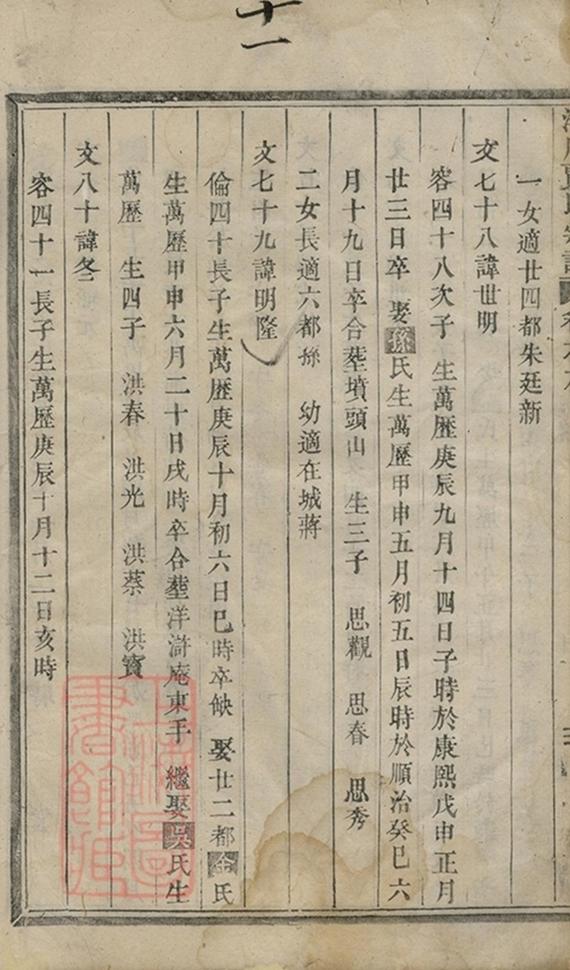 十一
一女適廿四都朱廷新
文七十八諱世明
容四十八次子 生萬歷庚辰九月十四日子時於康熙戊申正月
廿三日卒 娶孫氏生萬歷甲申五月初五日辰時於順治癸巳六
月十九日卒合塟墳頭山 生三子 思觀 思春 思秀
二女長適六都孫 幼適在城蔣
文七十九諱明隆
倫四十長子生萬歷庚辰十月初六日巳時卒缺 娶廿二都金氏
生萬歷甲申六月二十日戌時卒合塟洋滸庵東手 繼娶吳氏生
萬歷 生四子 洪春 洪光 洪蔡 洪寳
文八十諱冬
容四十一長子生萬歷庚辰十月十二日亥時